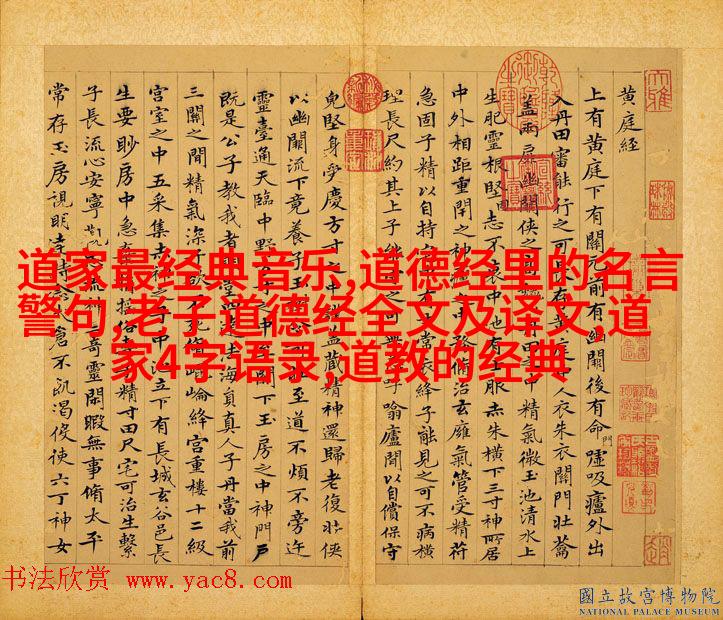 黄庭経
上有黄庭下有關元前有幽闕後有命門嘘吸廬外出
入丹田審能行之可長存黄庭中人衣朱衣關門壯蘥
蓋兩扉幽闕俠之高巍丹田之中精氣微玉池清水上
生肥靈根堅志不衰中池有士服赤朱横下三寸神所居
中外相距重閇之神廬之中務脩治玄廱氣管受精符
急固子精以自持宅中有士常衣絳子能見之可不病横
理長尺約其上子能守之可無恙呼噏廬閒以自償保守
皃堅身受慶方寸之中謹蓋藏精神還歸老復壯俠
以幽闕流下竟養子玉樹不可杖至道不煩不旁迕
靈臺通天臨中野方寸之中至關下玉房之中神門戶
既是公子教我者明堂四達法海負真人子丹當我前
三關之間精氣深子欲不死脩崐崘絳宮重樓十二級
宮室之中五采集赤神之子中池立下有長城玄谷邑長
生要眇房中急棄捐淫俗專子精寸田尺宅可治生繫
子長流心安寧觀志流神三奇靈閑暇無事脩太平
常存玉房視明達時念大倉不飢渴役使六丁神女
道家最经典音乐,道德经里的名言
警句,老子道德经全文及译文,道
家4字语录,道教的经典
书法欣赏 www.yac8.com
國立故宮博物院
NATIONAL PALACE MUSEUM